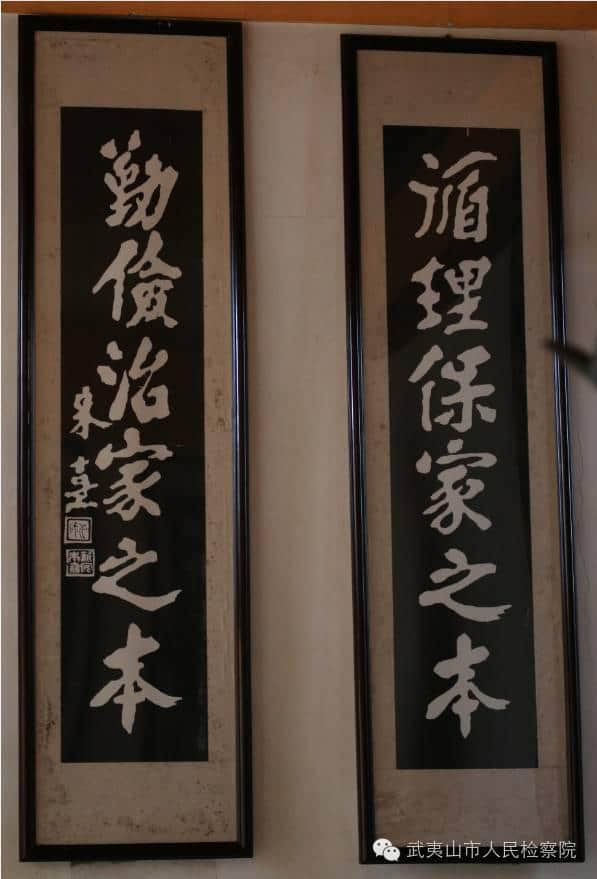 循理保家之本
勤儉治家之本
朱熹
武夷山市人民检察院